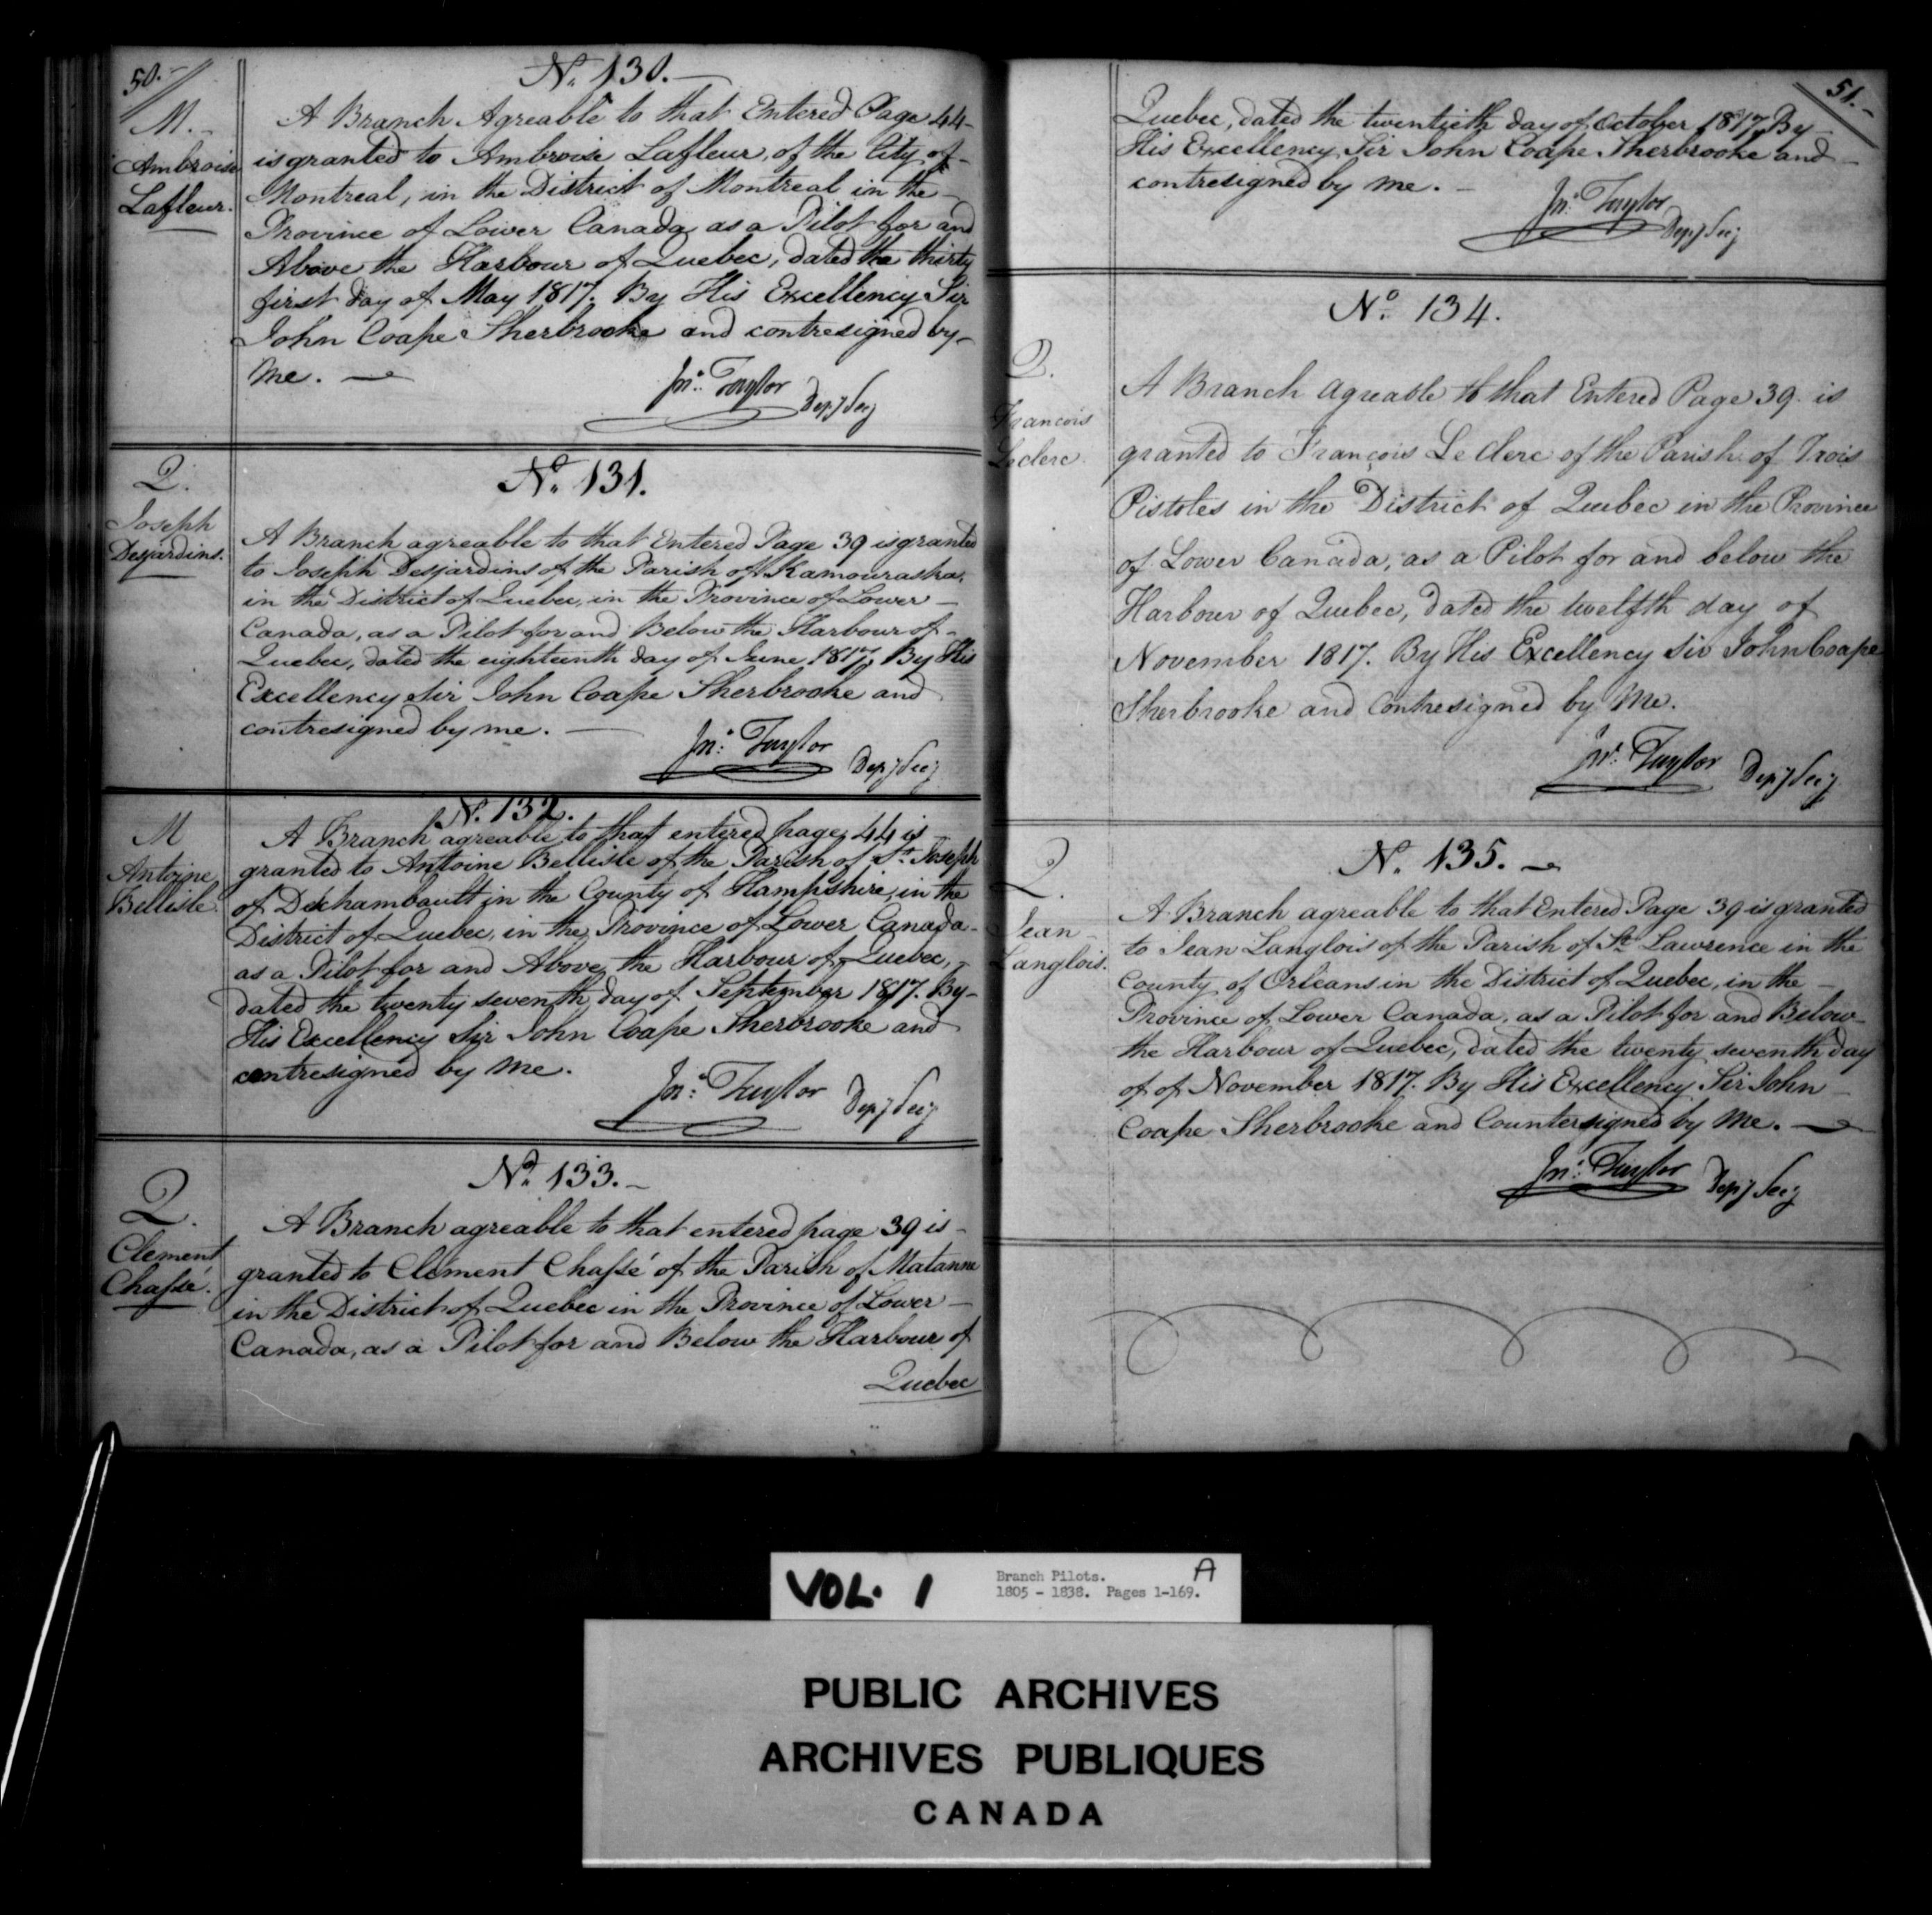 50.-
M.-
Ambroise
Lafleur.
No. 130.-
A Branch Agreable to that Entered Page 44-
is granted to Ambroise Lafleur, of the City of-
Montreal, in the District of Montreal in the-
Province of Lower Canada as a Pilot for and
Above the Harbour of Quebec, dated the thirty
first day of May 1817. By His Excellency Sir
John Coape Sherbrooke and contresigned by-
me.-
Jno. Taylor
Depy Secy
Q.
Joseph
Desjardins.
No. 131.
A Branch agreable to that Entered Page 39 is granted
to Joseph Desjardins of the Parish of Kamouraska,
in the District of Quebec, in the Province of Lower-
Canada, as a Pilot for and Below the Harbour of-
Quebec, dated the eighteenth day of June, 1817. By His
Excellency Sir John Coape Sherbrooke and
contresigned by me.-
Jno. Taylor
Depy Secy
M
Antoine
Bellisle.
No. 132.
A Branch agreable to that entered page 44 is
granted to Antoine Bellisle of the Parish of St. Joseph
of Dechambault in the County of Hampshire, in the
District of Quebec, in the Province of Lower Canada-
as a Pilot for and Above the Harbour of Quebec,-
dated the twenty seventh day of September 1817. By-
His Excellency Sir John Coape Sherbrooke and
contresigned by me.
Jno. Taylor
Depy Secy
Q.
Clement
Chassé.
No. 133.-
A Branch agreable to that entered page 39 is-
granted to Clément Chassé of the Parish of Matanne
in the District of Quebec in the Province of Lower-
Canada, as a Pilot for and Below the Harbour of
Quebec
51.-
Quebec, dated the twentieth day of October 1817. By
His Excellency Sir John Coape Sherbrooke and-
contresigned by me.-
Jno. Taylor
Depy Secy
Q.
Francois
Leclerc.
No. 134.
A Branch agreable to that Entered Page 39. is
granted to François Le Clerc of the Parish of Trois
Pistoles in the District of Quebec in the Province
of Lower Canada, as a Pilot for and below the
Harbour of Quebec, dated the twelfth day of
November 1817. By His Excellency Sir John Coape
Sherbrooke and Contresigned by Me.
Jno. Taylor
Depy Secy
Q.
Jean
Langlois.
No. 135.-
A Branch agreable to that Entered Page 39 is granted
to Jean Langlois of the Parish of St. Lawrence in the
County of Orleans in the District of Quebec, in the-
Province of Lower Canada, as a Pilot for and Below-
the Harbour of Quebec, dated the twenty seventh day
of of November 1817. By His Excellency Sir John-
Coape Sherbrooke and Countersigned by Me.-
Jno. Taylor
Depy Secy
VOL. 1
Branch Pilots.
1805 - 1838. Pages 1-169.
A
PUBLIC ARCHIVES
ARCHIVES PUBLIQUES
CANADA